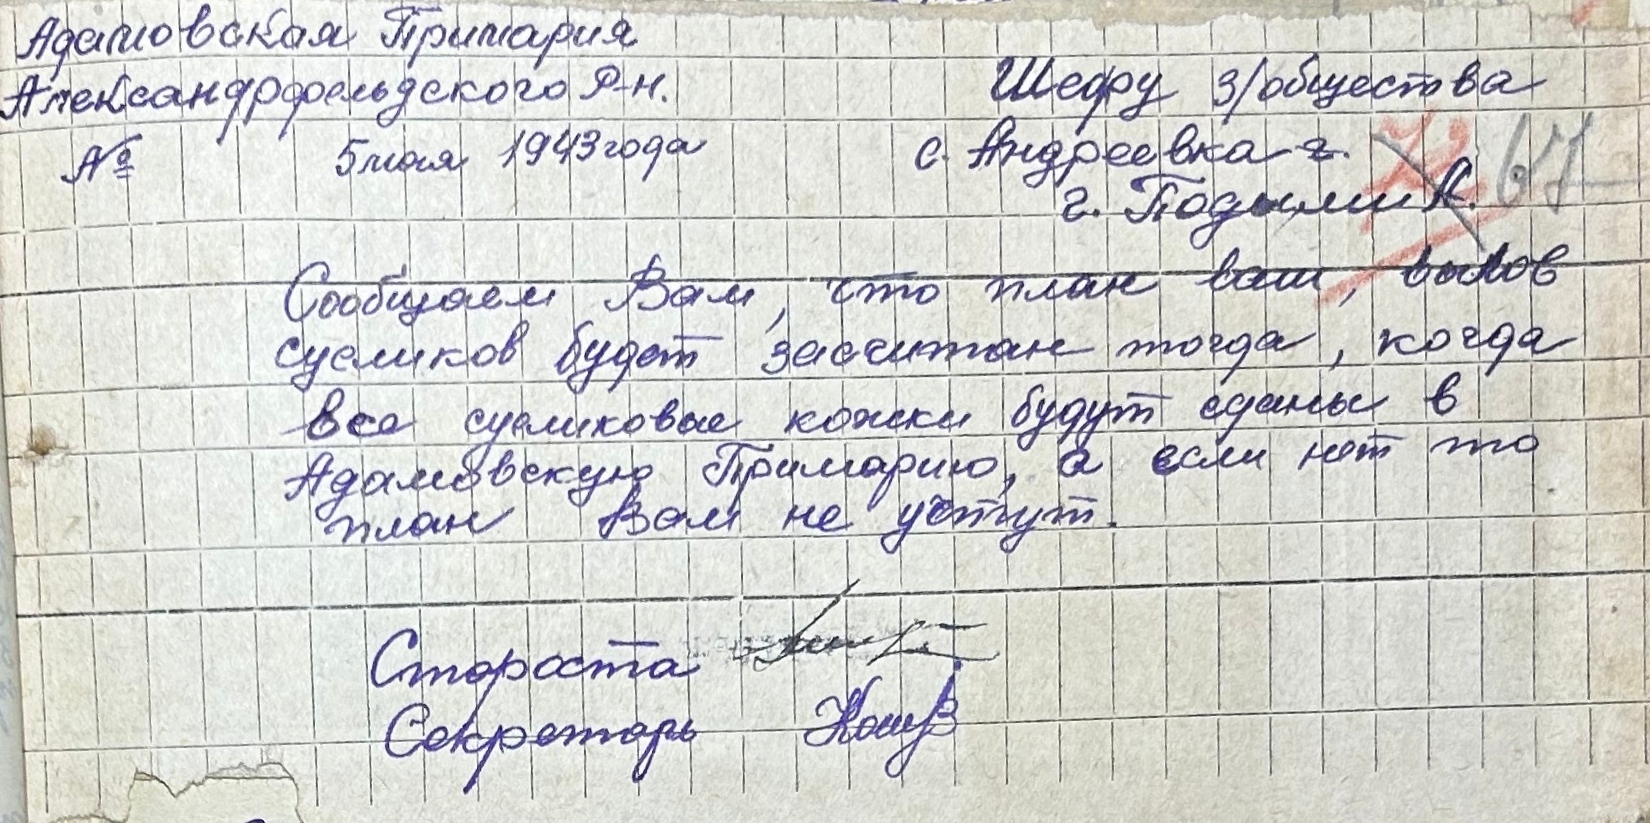 Адамовская Примария
Александрфельдского Р-н.
№ 5 мая 1943 года
Шефру з/общества
с. Андреевка г.
г. Подылин А.
67
Сообщаем Вам, что план ваш, вылов
сусликов будет засчитан тогда, когда
все сусликовые кожки будут сданы в
Адамовскую Примарию, а если нет то
план Вам не учтут.
Староста
Секретарь